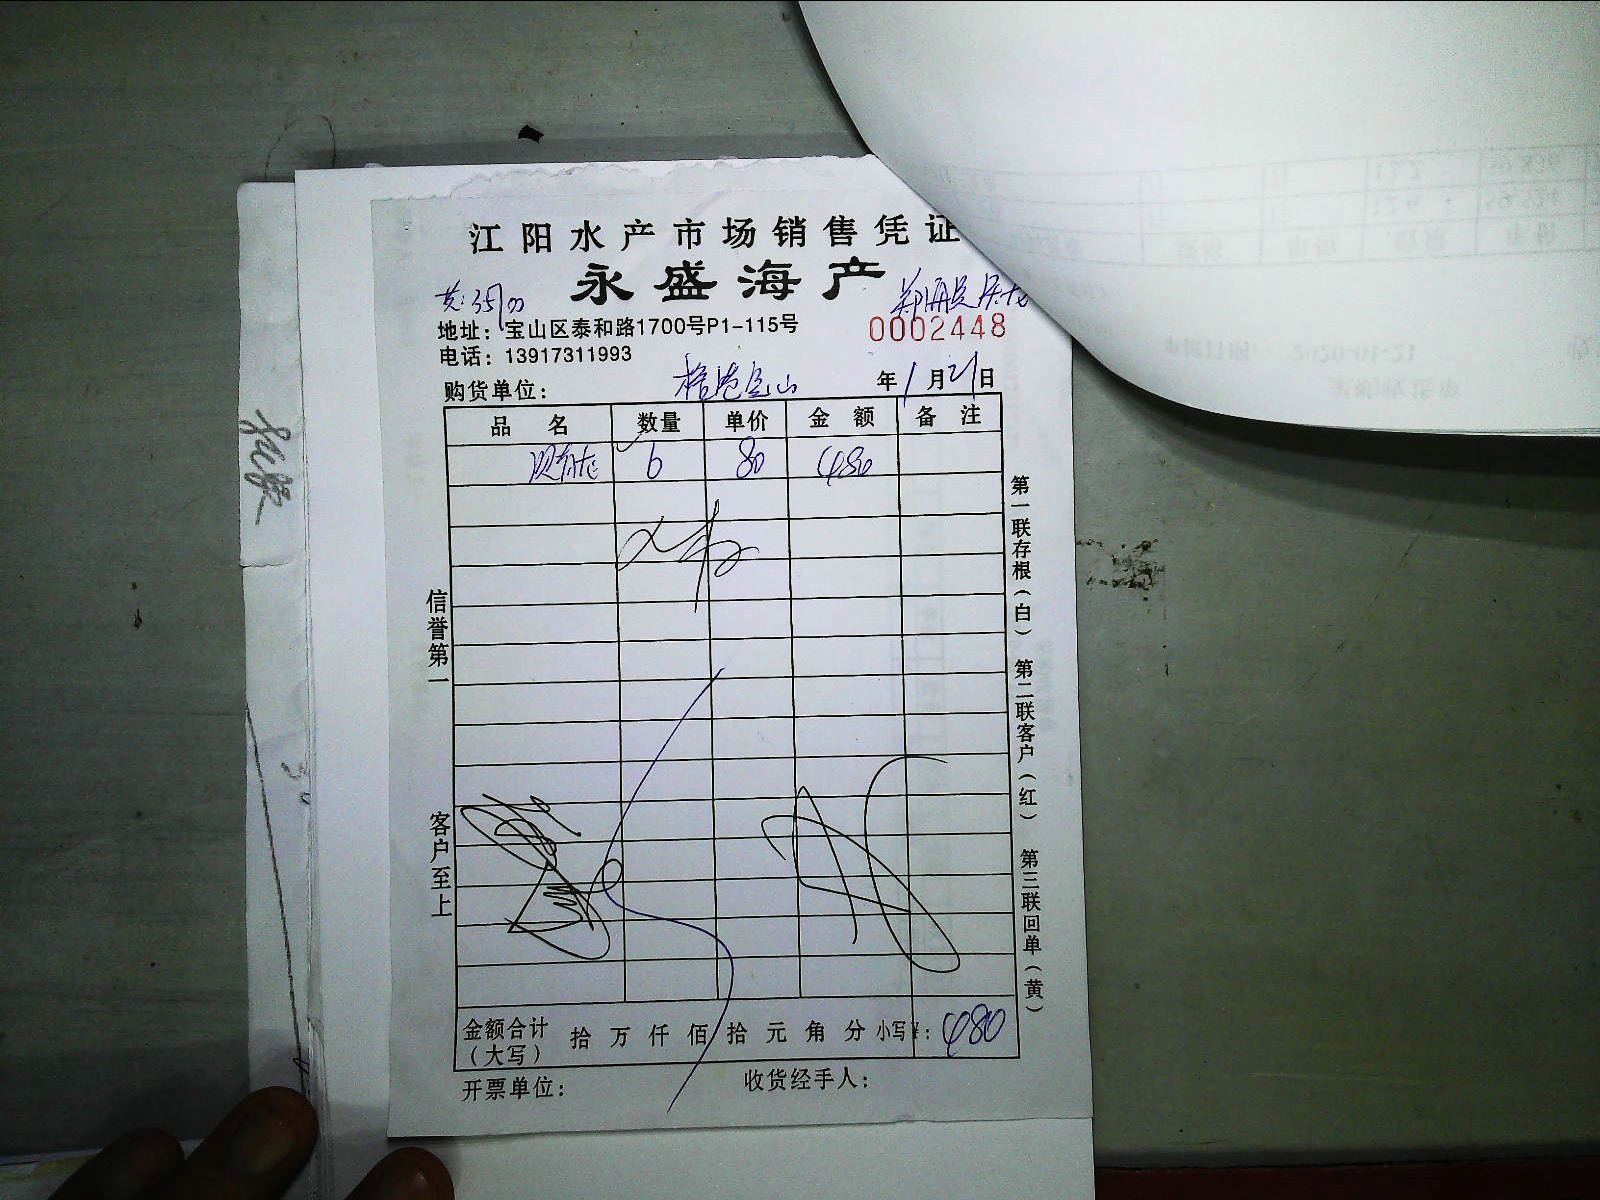 江阳水产市场销售凭证
永盛海产
地址：宝山区泰和路1700号P1-115号
0002448
电话：13917311993
购货单位： 年1月21日
品名 数量 单价 金额 备注
6 80 480
信誉第一
客户至上
第一联存根（白）
第二联客户（红）
第三联回单（黄）
金额合计（大写） 拾 万 仟 佰 拾 元 角 分 小写￥：480
开票单位： 收货经手人：